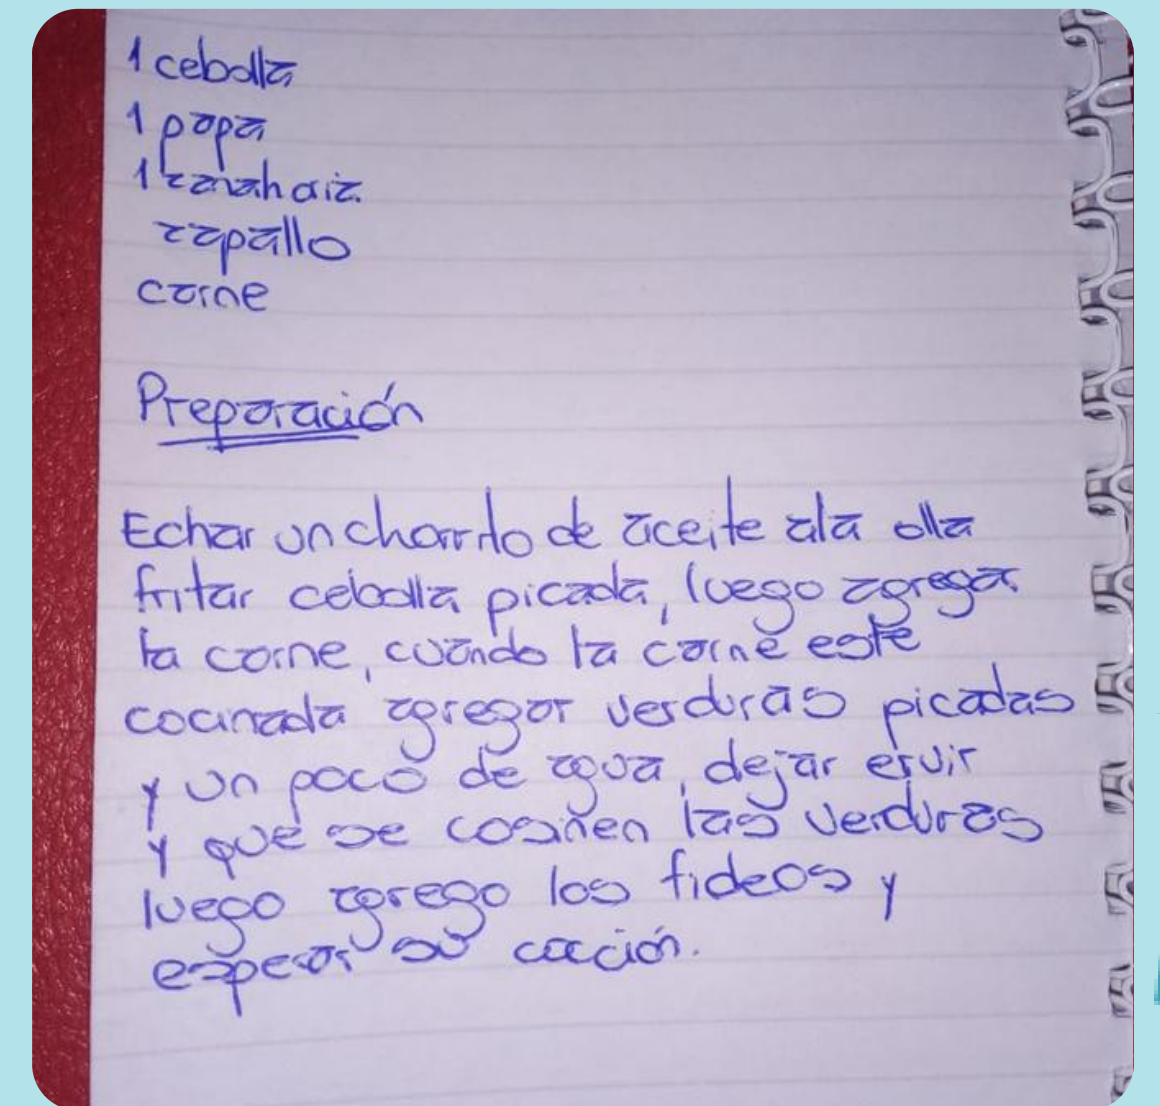 1 cebolla
1 papa
1 zanahoria
zapallo
carne
Preparación
Echar un chorrito de aceite ala olla
fritar cebolla picada, luego agregar
la carne, cuando la carne este
cocinada agregar verduras picadas
y un poco de agua, dejar ervir
y que se cosinen las verduras
luego agrego los fideos y
esperar su cocción.